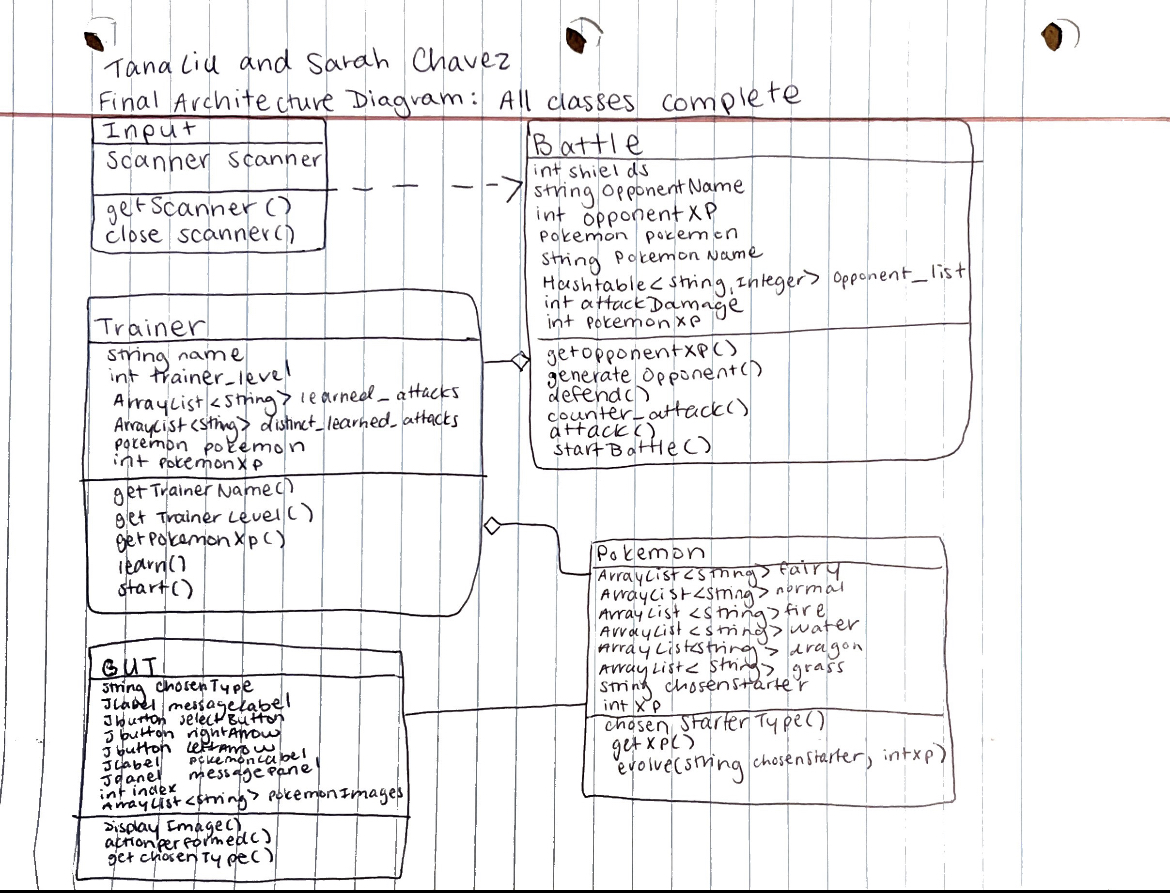 Tana Liu and Sarah Chavez
Final Architecture Diagram: All classes complete
Input
Scanner Scanner
getScanner()
close scanner()
Battle
int shields
string OpponentName
int opponentXP
Pokemon pokemon
string PokemonName
Hashtable<String,Integer> Opponent_list
int attackDamage
int pokemonXp
getOpponentXP()
generate Opponent()
defend()
counter_attack()
attack()
startBattle()
Trainer
string name
int trainer_level
ArrayList<String> learned_attacks
ArrayList<String> distinct_learned_attacks
pokemon pokemon
int pokemonXp
getTrainerName()
get Trainer Level()
getPokemonXp()
learn()
start()
Pokemon
ArrayList<String> fairy
ArrayList<String> normal
ArrayList<String> fire
ArrayList<String> water
ArrayList<String> dragon
ArrayList<String> grass
String chosenStarter
int XP
chosen Starter Type()
getXp()
evolve(string chosenStarter, int xp)
GUI
string chosenType
JLabel messageLabel
Jbutton selectButton
Jbutton rightArrow
Jbutton leftArrow
JLabel pokemonLabel
Jpanel messagePanel
int index
ArrayList<String> pokemonImages
Display Image()
actionperformed()
get chosenType()